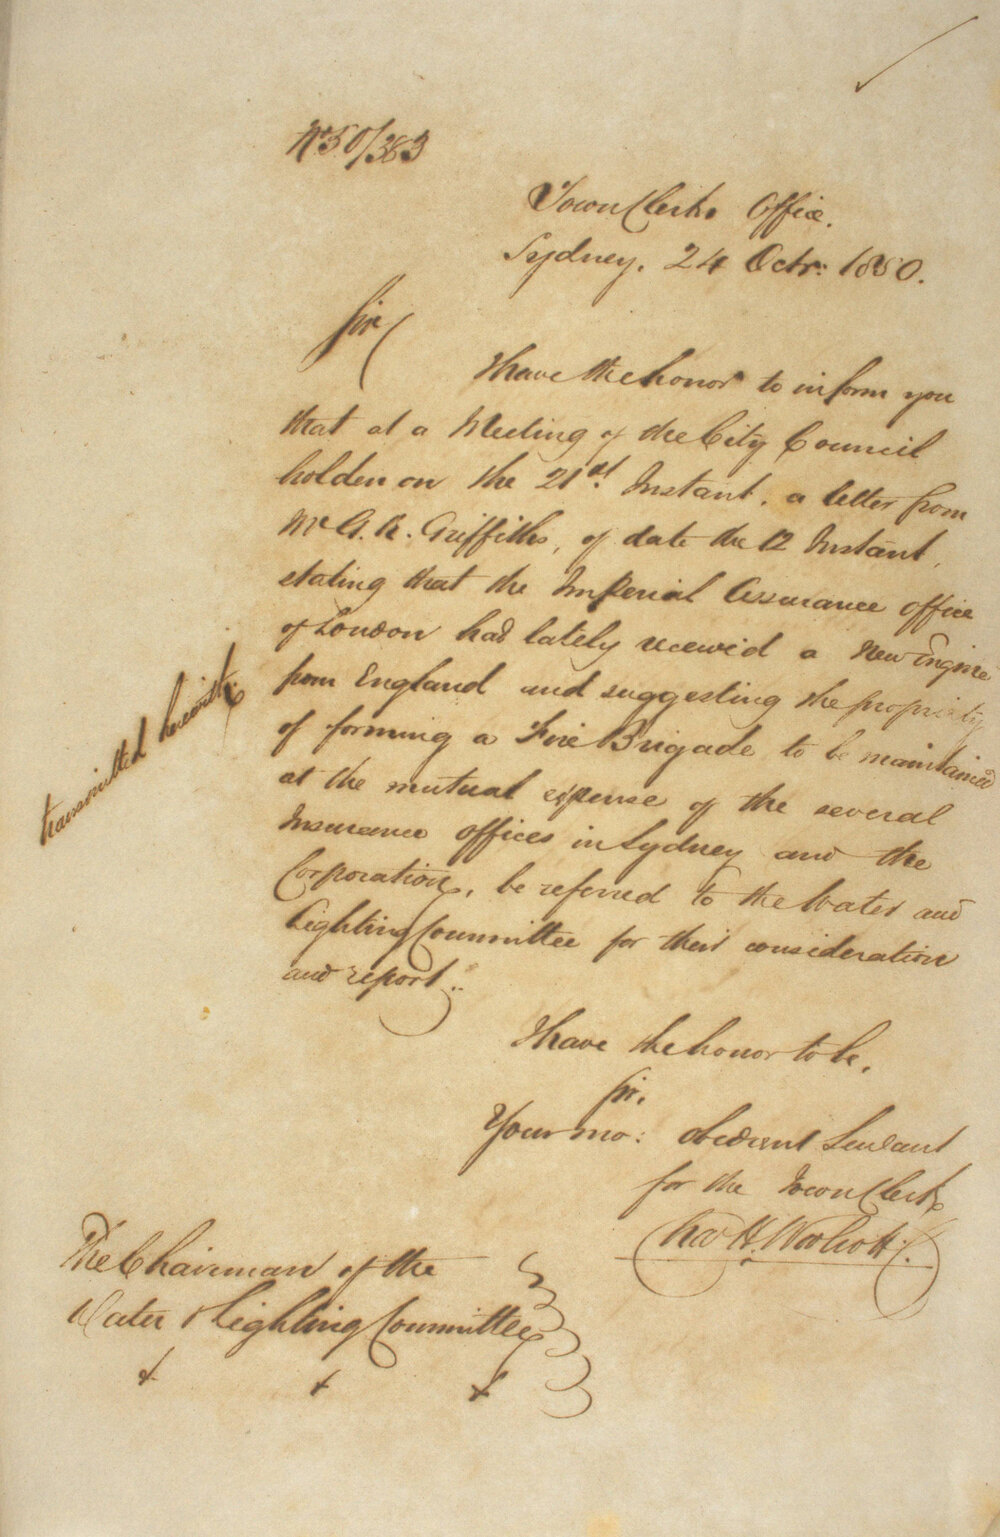 No 50/383
Town Clerks Office.
Sydney. 24 Octr: 1850.
Sir
I have the honor to inform you
that at a Meeting of the City Council
holden on the 21st. Instant. a letter from
Mr G. R. Griffiths, of date the 12 Instant,
stating that the Imperial Assurance Office
of London had lately receivid a New Engine
from England and suggesting the propriety
of forming a Fire Brigade to be maintained
at the mutual expense of the several
Insurance offices in Sydney and the
Corporation, be referred to the Water and
Lighting Committee for their consideration
and report..
transmitted herewith
I have the honor to be,
Sir,
Your mo: obedient Servant
for the Town Clerk
Chas H. Woolcott
The Chairman of the
Water & Lighting Committee